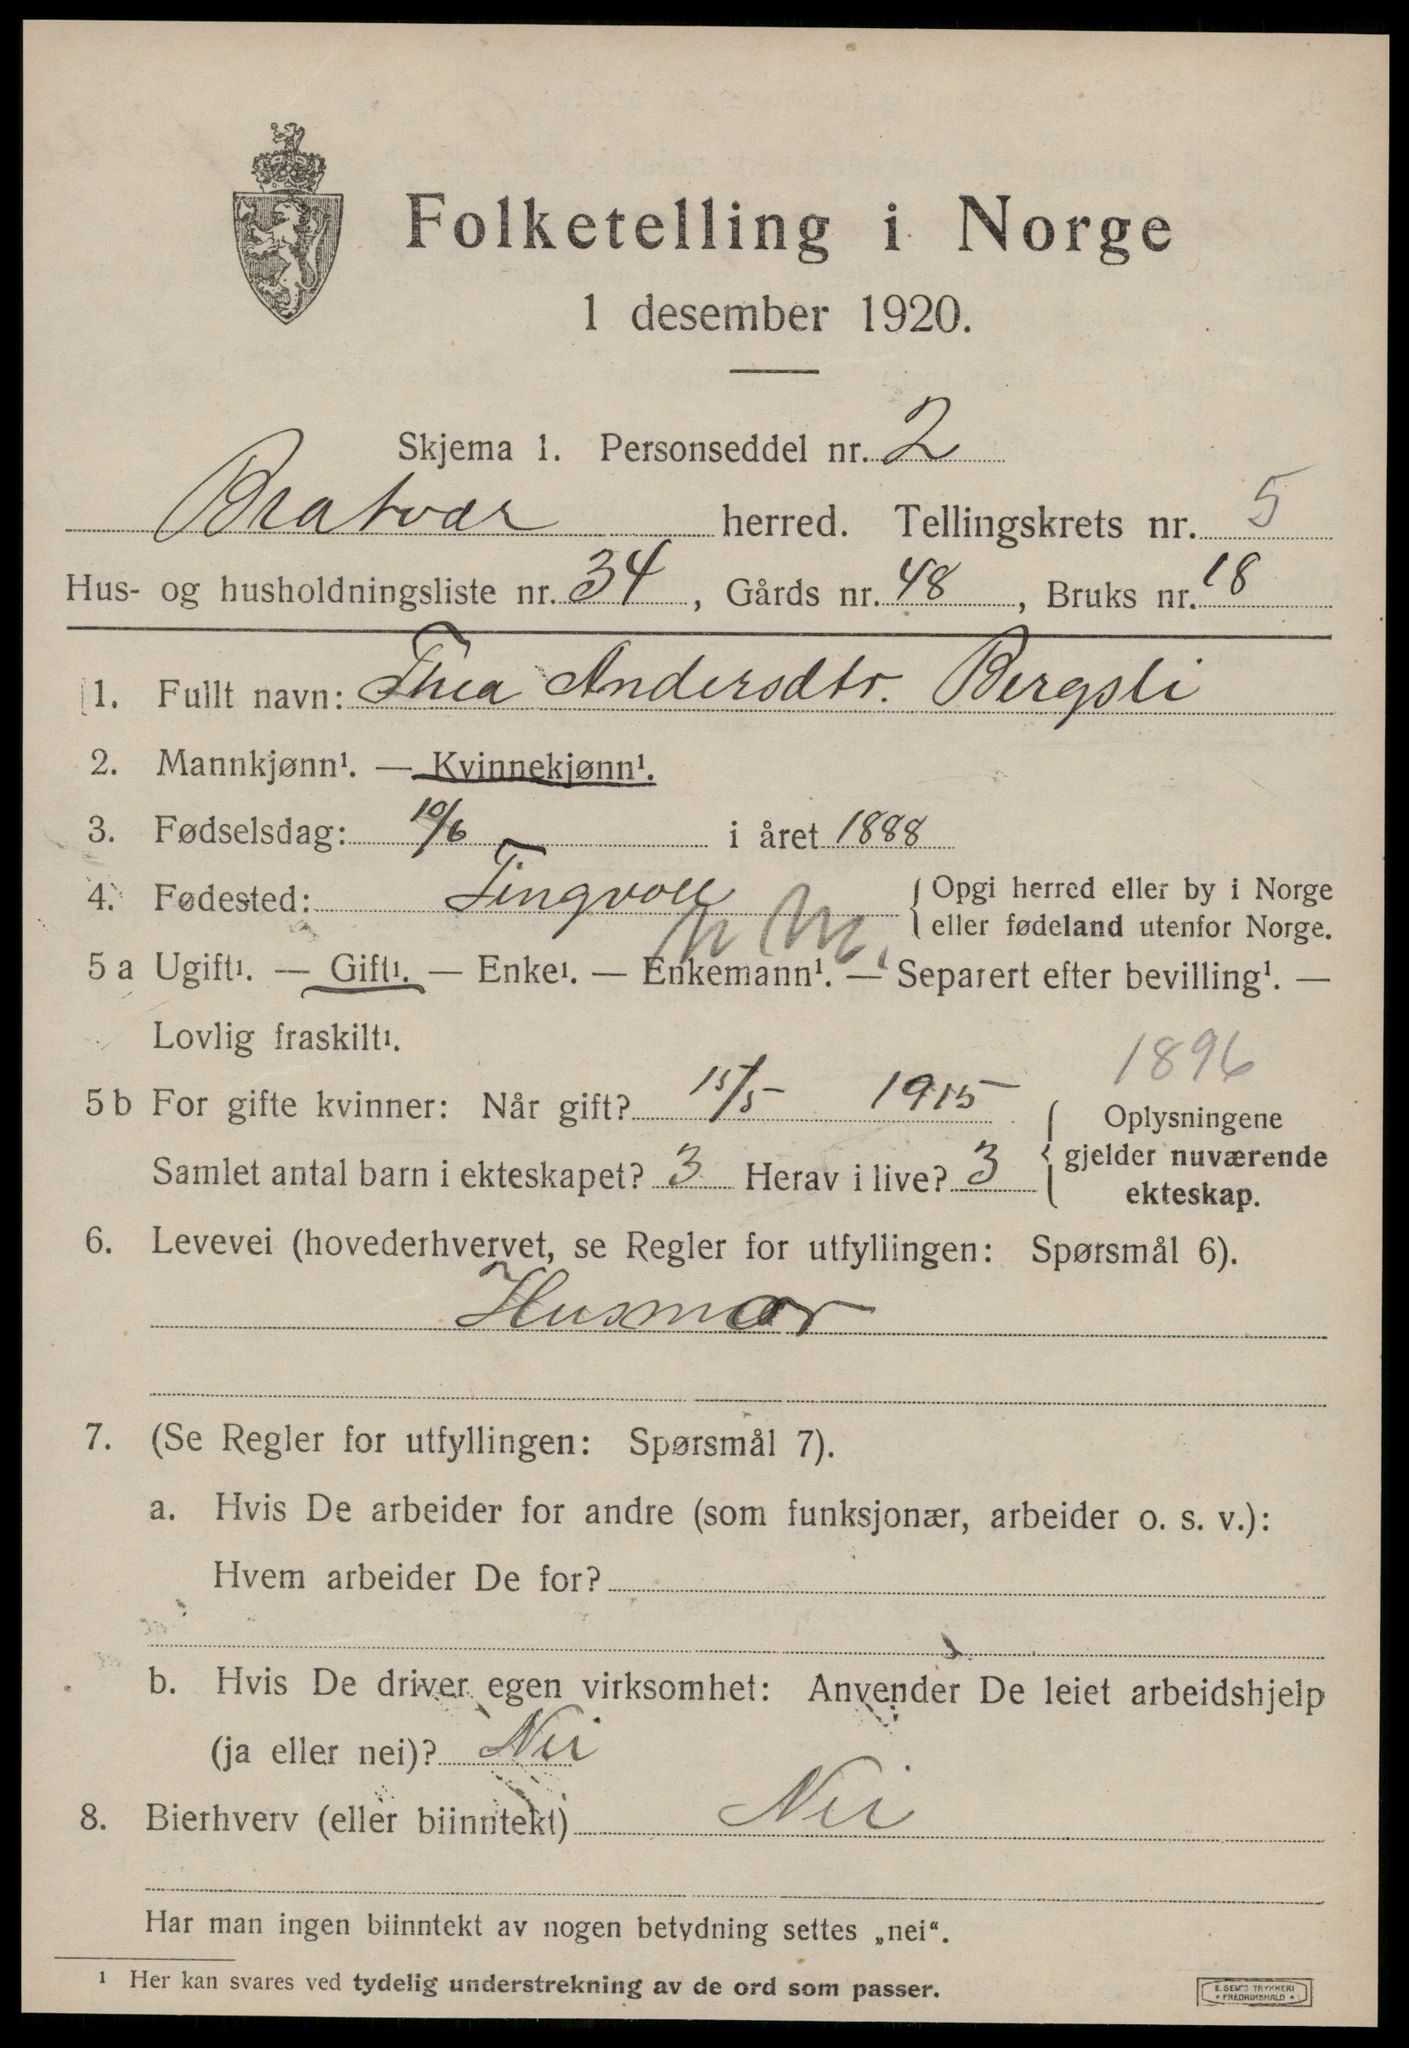 Folketelling i Norge
1 desember 1920.
Skjema 1. Personseddel nr. 2
Bratvær herred. Tellingskrets nr. 5
Hus- og husholdningsliste nr. 34, Gårds nr. 48, Bruks nr. 18
1. Fullt navn: Thea Andersdtr. Bergsli
2. Mannkjønn¹. — Kvinnekjønn¹.
3. Fødselsdag: 10/6 i året 1888
4. Fødested: Tingvoll { Opgi herred eller by i Norge
eller fødeland utenfor Norge.
5 a Ugift¹. — Gift¹. — Enke¹. — Enkemann¹. — Separert efter bevilling¹. —
Lovlig fraskilt¹.
1896
5 b For gifte kvinner: Når gift? 15/5 1915 { Oplysningene
gjelder nuværende
ekteskap.
Samlet antal barn i ekteskapet? 3 Herav i live? 3
6. Levevei (hovederhvervet, se Regler for utfyllingen: Spørsmål 6).
Husmor
7. (Se Regler for utfyllingen: Spørsmål 7).
a. Hvis De arbeider for andre (som funksjonær, arbeider o. s. v.):
Hvem arbeider De for?
b. Hvis De driver egen virksomhet: Anvender De leiet arbeidshjelp
(ja eller nei)? Nei
8. Bierhverv (eller biinntekt) Nei
Har man ingen biinntekt av nogen betydning settes „nei“.
¹ Her kan svares ved tydelig understrekning av de ord som passer.
E. SEM'S TRYKKERI
* FREDRIKSHALD *